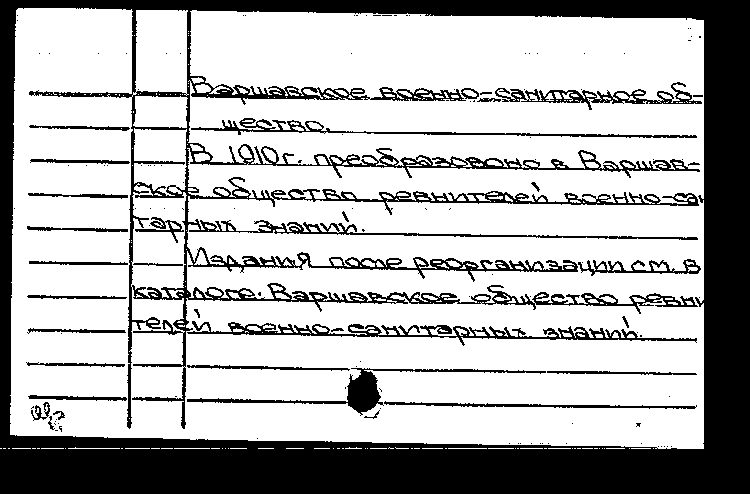 Варшавское военно-санитарное об-
щество.
В 1910г. преобразовано в Варшав-
ское общество ревнителей военно-сан
тарных знаний.
Издания после реорганизации см. в
каталоге: Варшавское общество ревни
телей военно-санитарных знаний.